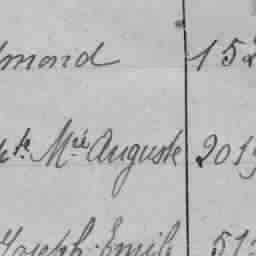 mond 152
te Mie Auguste 2019
Joseph Emile 51